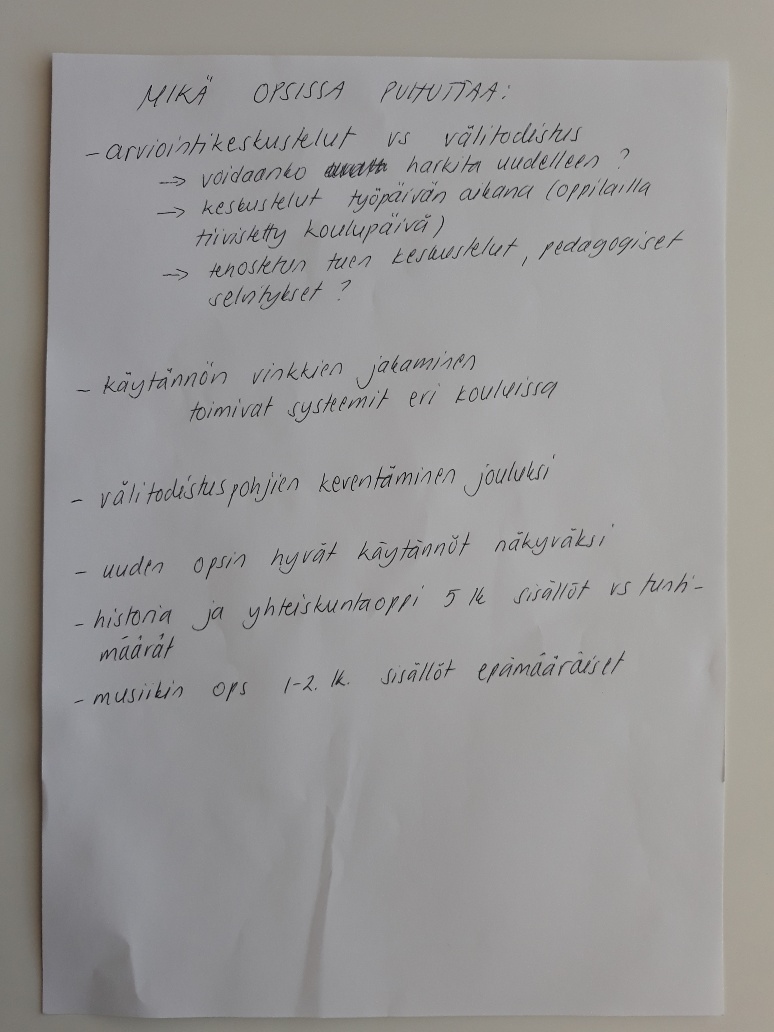 MIKÄ OPSISSA PUHUTTAA:
- arviointikeskustelut vs välitodistus
→ voidaanko harkita uudelleen?
→ keskustelut työpäivän aikana (oppilailla
tiivistetty koulupäivä)
→ tehostetun tuen keskustelut, pedagogiset
selvitykset?
- käytännön vinkkien jakaminen
toimivat systeemit eri kouluissa
- välitodistuspohjien keventäminen jouluksi
- uuden opsin hyvät käytännöt näkyväksi
- historia ja yhteiskuntaoppi 5 lk sisällöt vs tunti-
määrät
- musiikin ops 1-2. lk. sisällöt epämääräiset